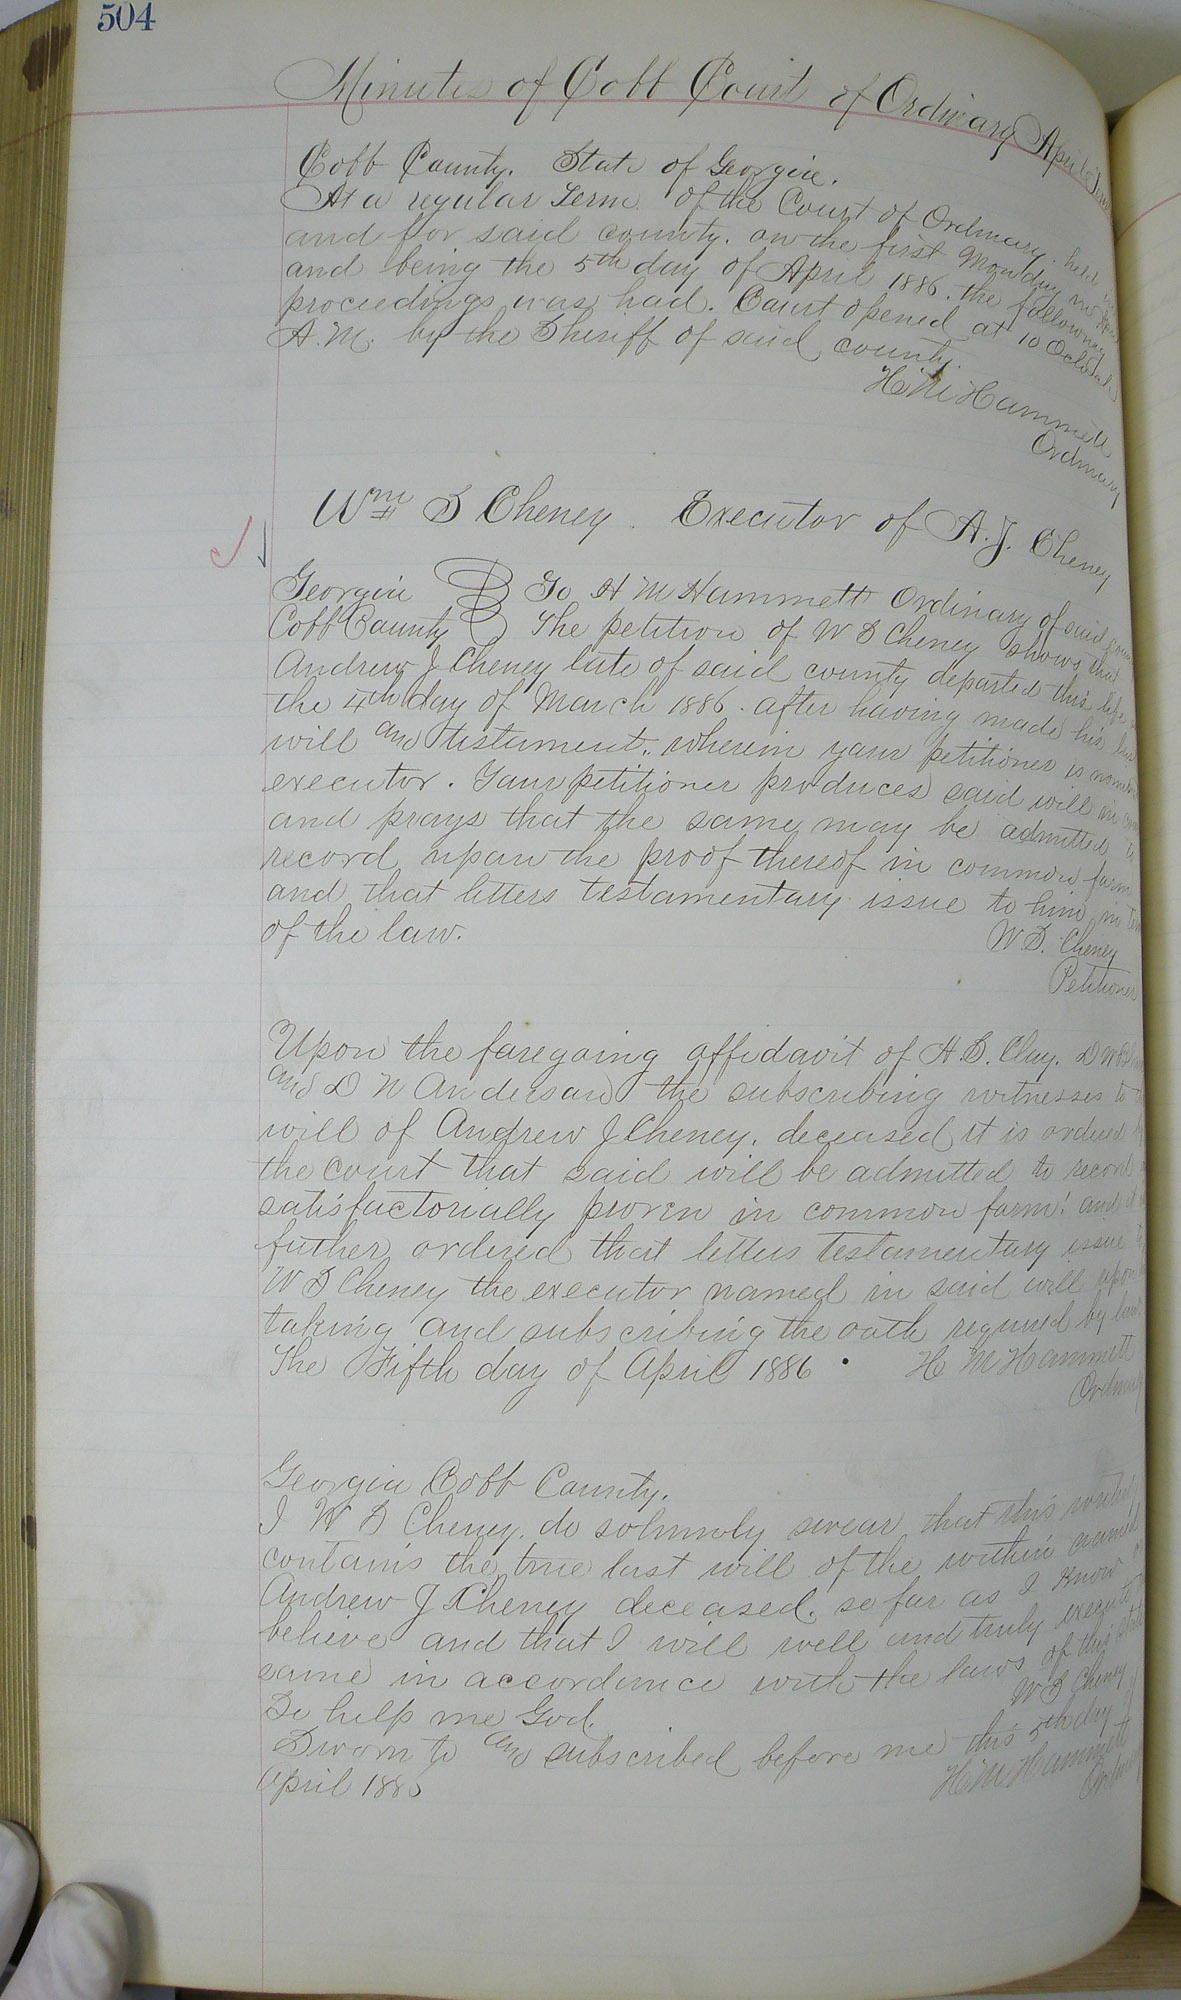 504
Minutes of Cobb Court of Ordinary April Term
Cobb County. State of Georgia.
At a regular Term of the Court of Ordinary. held in
and for said county. on the first Monday in
and being the 5th day of April 1886. the following
proceedings was had. Court opened at 10 Oclock
A.M. by the Sheriff of said county.
H M Hammett
Ordinary
Wm S Cheney. Executor of A. J. Cheney
Georgia To H M Hammett Ordinary of said
Cobb County The petition of W S Cheney shows that
Andrew J Cheney late of said county departed this life
the 4th day of March 1886. after having made his
will and testament. wherein your petitioner is
executor. Your petitioner produces said will in
and prays that the same may be admitted to
record upon the proof thereof in common form
and that letters testamentary issue to him in
of the law.
W S. Cheney
Petitioner
Upon the foregoing affidavit of H S. Clay.
and D N Anderson the subscribing witnesses to
will of Andrew J Cheney, deceased it is ordered
the court that said will be admitted to record
satisfactorially proven in common form! and
futher ordered that letters testamentary issue
W S Cheney the executor named in said will upon
taking and subscribing the oath required by law
The Fifth day of April 1886. H M Hammett
Ordinary
Georgia Cobb County.
I W S Cheney. do solmnly swear that this
contains the true last will of the within named
Andrew J Cheney deceased. so far as I know
believe and that I will well and truly execute
same in accordance with the laws of this State
So help me God. W S Cheney
Sworn to and subscribed before me this 5th day
April 1886 H M Hammett